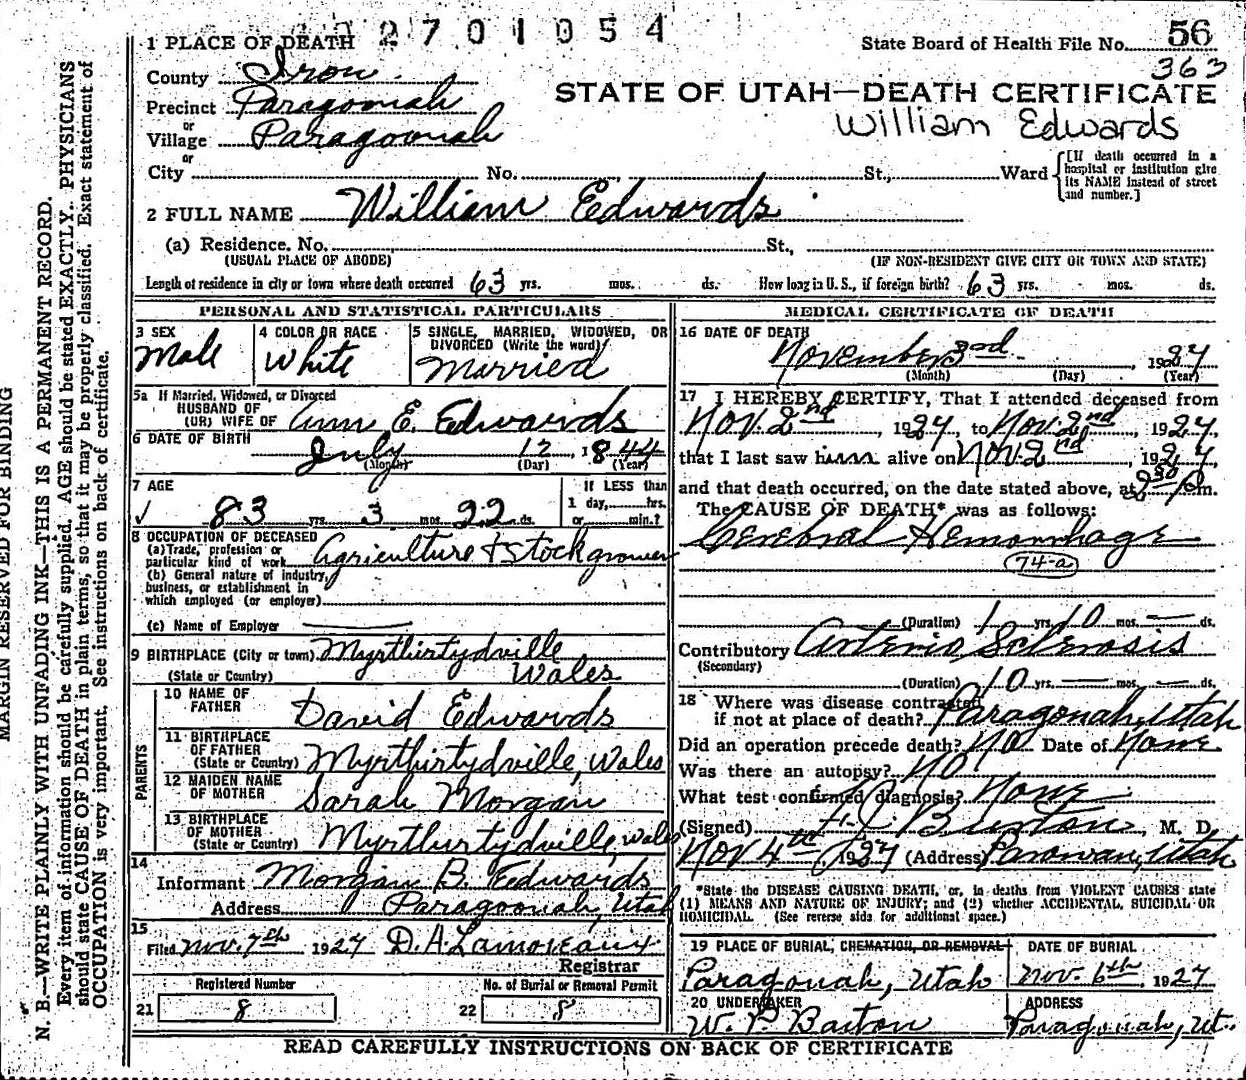 2701054
1 PLACE OF DEATH
State Board of Health File No. 56
363
County Iron
STATE OF UTAH—DEATH CERTIFICATE
Precinct Paragoonah
William Edwards
or
Village Paragoonah
or
City No. St., Ward
[If death occurred in a hospital or institution give its NAME instead of street and number.]
2 FULL NAME William Edwards
(a) Residence. No. St.,
(USUAL PLACE OF ABODE) (IF NON-RESIDENT GIVE CITY OR TOWN AND STATE)
Length of residence in city or town where death occurred 63 yrs. mos. ds. How long in U. S., if foreign birth? 63 yrs. mos. ds.
PERSONAL AND STATISTICAL PARTICULARS
3 SEX Male
4 COLOR OR RACE White
5 SINGLE, MARRIED, WIDOWED, OR DIVORCED (Write the word) Married
5a If Married, Widowed, or Divorced
HUSBAND OF
(OR) WIFE OF Ann E. Edwards
6 DATE OF BIRTH July 12, 1844
(Month) (Day) (Year)
7 AGE 83 yrs. 3 mos. 22 ds.
If LESS than
1 day, hrs.
or min.?
8 OCCUPATION OF DECEASED
(a) Trade, profession or
particular kind of work Agriculture & Stock grower
(b) General nature of industry,
business, or establishment in
which employed (or employer)
(c) Name of Employer
9 BIRTHPLACE (City or town) Myrthirtydville
(State or Country) Wales
PARENTS
10 NAME OF FATHER David Edwards
11 BIRTHPLACE OF FATHER
(State or Country) Myrthirtydville, Wales
12 MAIDEN NAME OF MOTHER Sarah Morgan
13 BIRTHPLACE OF MOTHER
(State or Country) Myrthurtydville, Wales
14
Informant Morgan B. Edwards
Address Paragoonah, Utah
15
Filed Nov. 7th 1927 D. A. Lamoreaux
Registrar
Registered Number No. of Burial or Removal Permit
21 8 22 8
MEDICAL CERTIFICATE OF DEATH
16 DATE OF DEATH
November 3rd, 1927
(Month) (Day) (Year)
17 I HEREBY CERTIFY, That I attended deceased from
Nov. 2nd, 1927, to Nov. 2nd, 1927,
that I last saw him alive on Nov 2nd, 1927,
and that death occurred, on the date stated above, at 2 30 P.m.
The CAUSE OF DEATH* was as follows:
Cerebral Hemorrhage
74-a
(Duration) 1 yrs. 10 mos. — ds.
Contributory Arterio Sclerosis
(Secondary)
(Duration) 10 yrs. — mos. — ds.
18 Where was disease contracted
if not at place of death? Paragonah, Utah
Did an operation precede death? No Date of None
Was there an autopsy? No
What test confirmed diagnosis? None
(Signed) Burton, M. D.
Nov 4th, 1927 (Address) Parowan, Utah
*State the DISEASE CAUSING DEATH, or, in deaths from VIOLENT CAUSES state
(1) MEANS AND NATURE OF INJURY; and (2) whether ACCIDENTAL, SUICIDAL OR
HOMICIDAL. (See reverse side for additional space.)
19 PLACE OF BURIAL, CREMATION, OR REMOVAL DATE OF BURIAL
Paragonah, Utah Nov. 6th, 1927
20 UNDERTAKER ADDRESS
W. P. Barton Paragonah, Ut.
READ CAREFULLY INSTRUCTIONS ON BACK OF CERTIFICATE
MARGIN RESERVED FOR BINDING
N. B.—WRITE PLAINLY WITH UNFADING INK—THIS IS A PERMANENT RECORD.
Every item of information should be carefully supplied. AGE should be stated EXACTLY. PHYSICIANS
should state CAUSE OF DEATH in plain terms, so that it may be properly classified. Exact statement of
OCCUPATION is very important. See instructions on back of certificate.